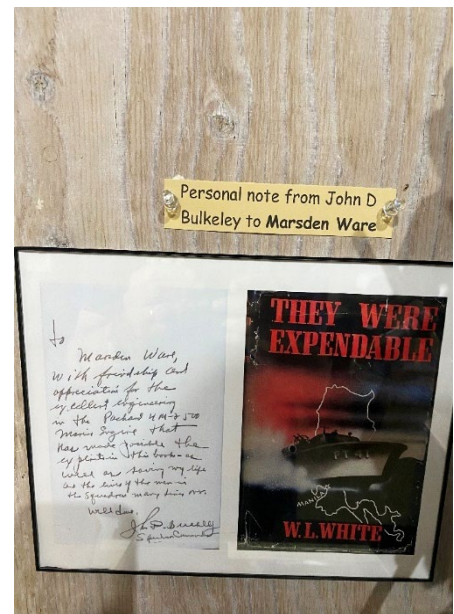 Personal note from John D
Bulkeley to Marsden Ware
to
Marsden Ware,
with friendship and
appreciation for the
excellent engineering
in the Packard 4M-2500
Marine Engine that
has made possible the
exploits in this book as
well as saving my life
as the lives of the men in
the Squadron many times over.
Well done.
John D. Bulkeley
Squadron Commander
THEY WERE
EXPENDABLE
W.L.WHITE